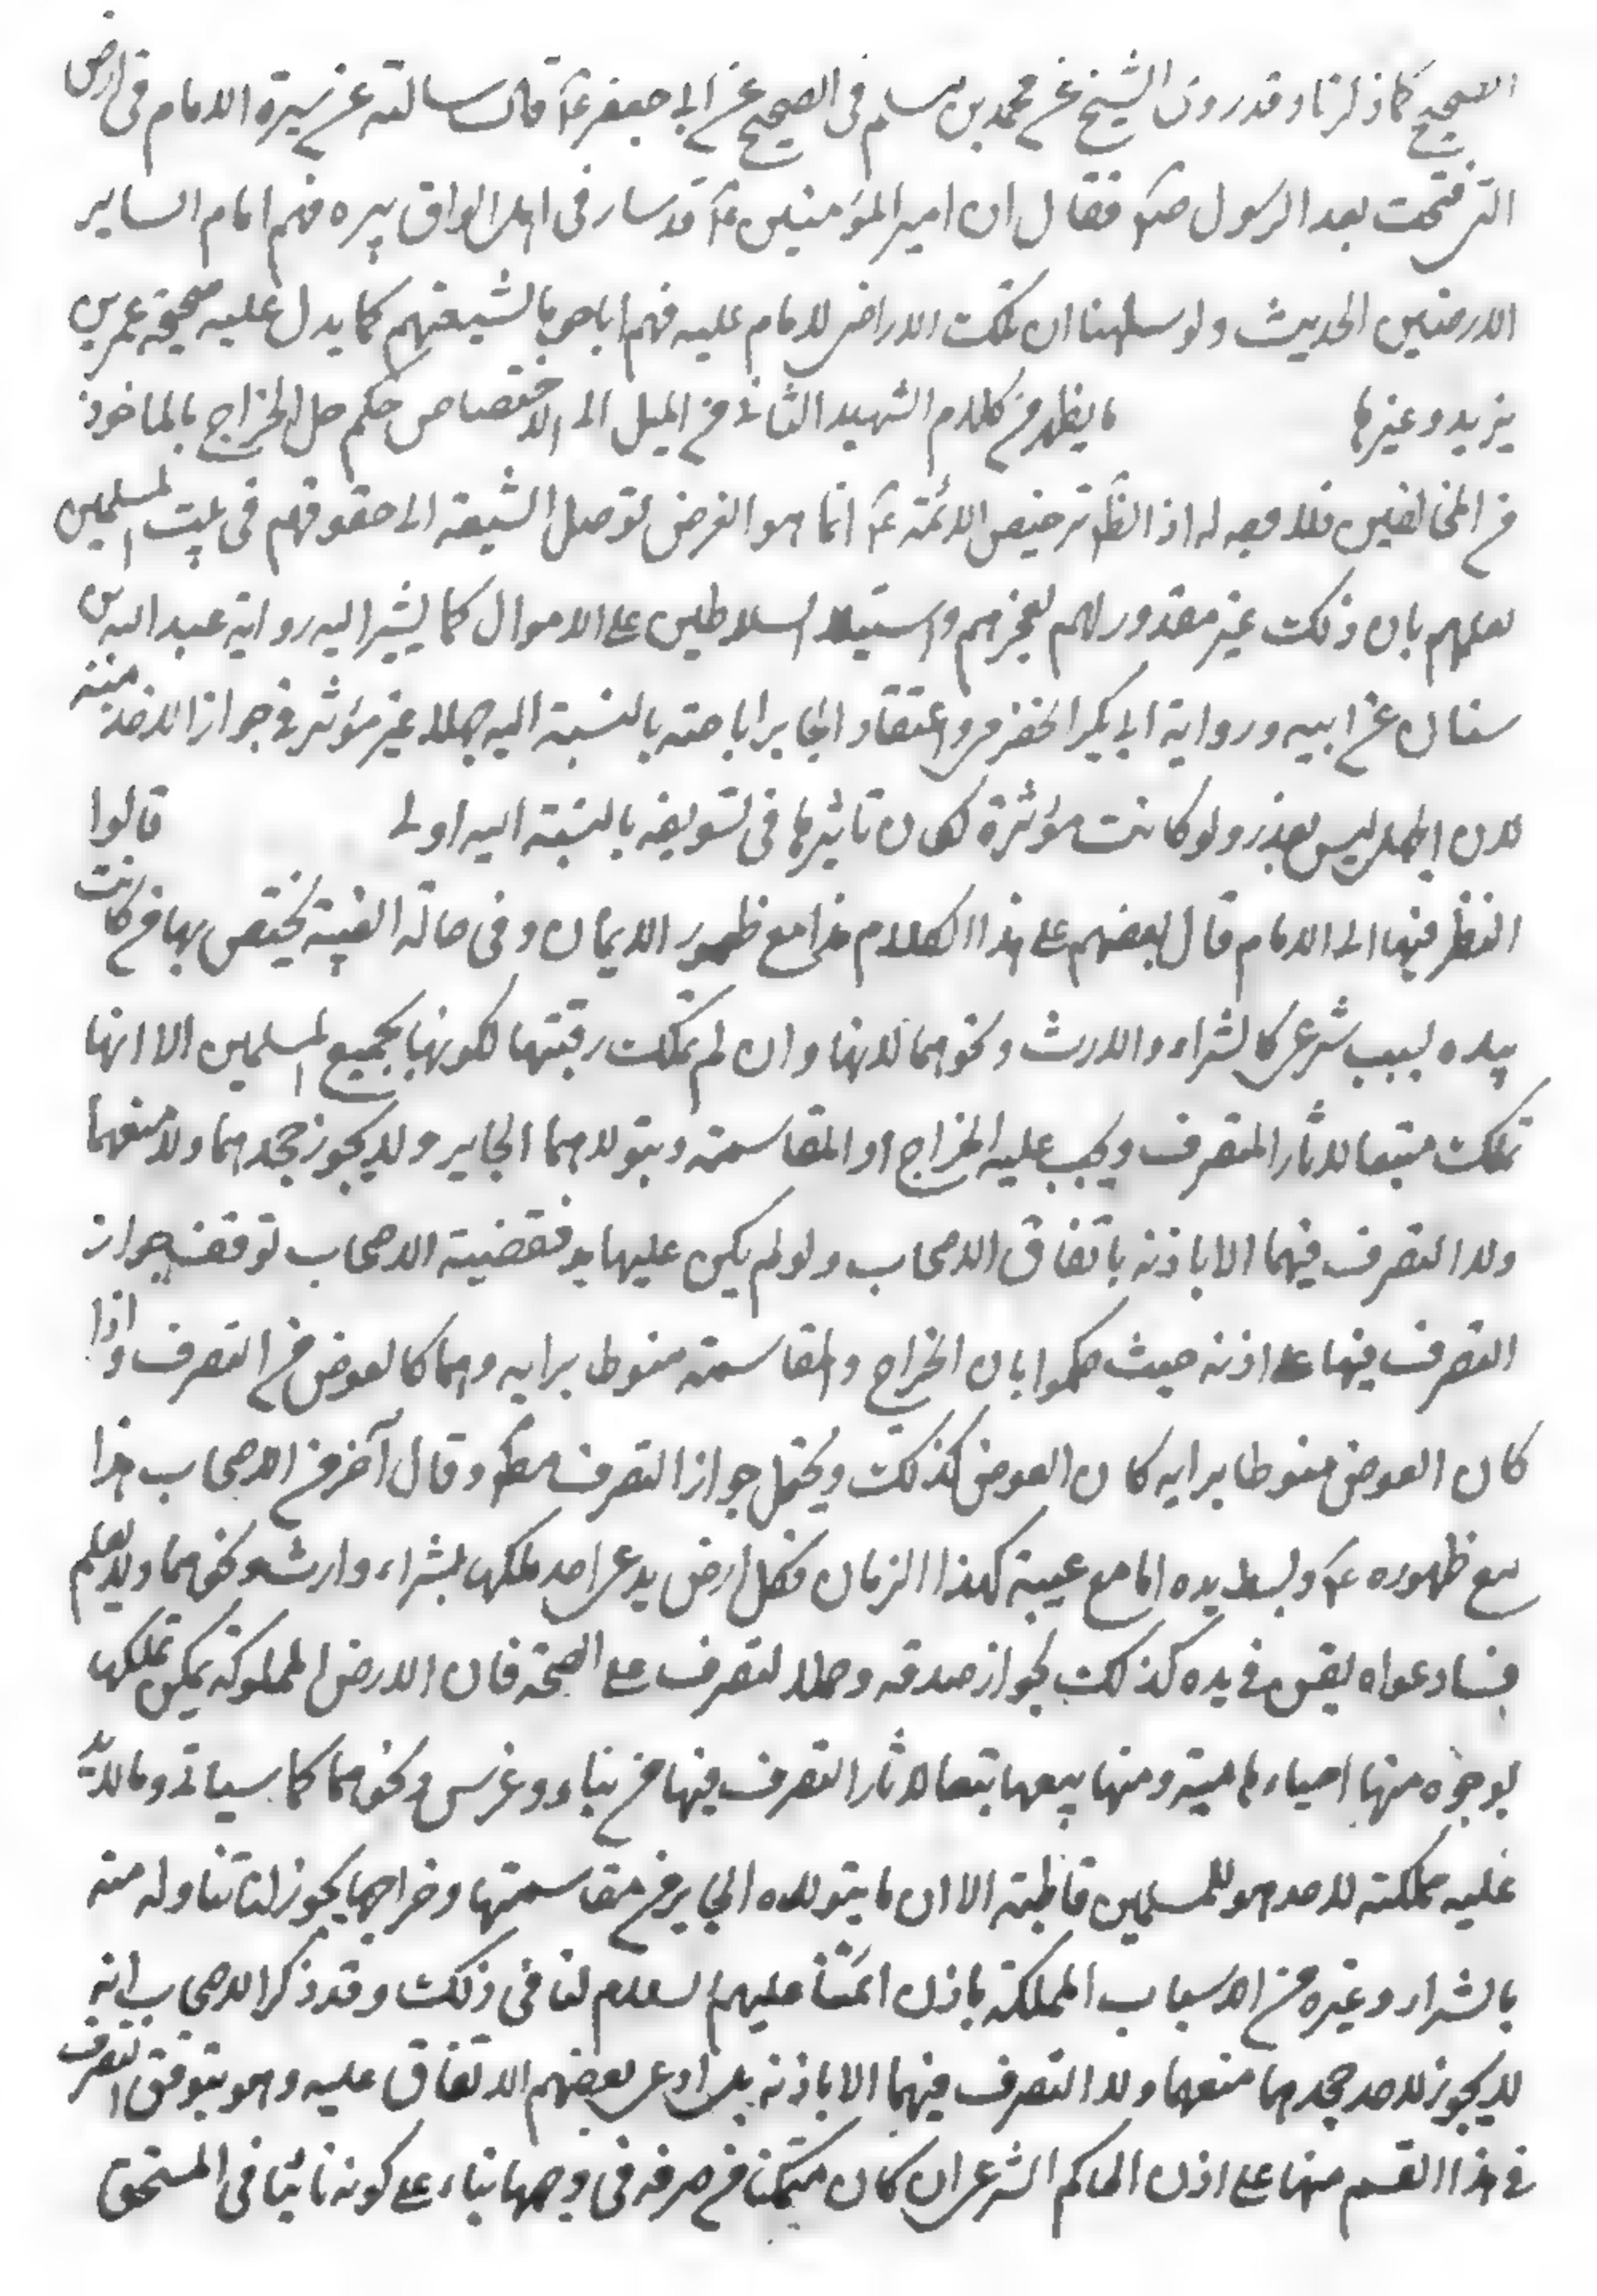 الصحيح كما ذكرنا وقد روى الشيخ عن محمد بن مسلم في الصحيح عن ابي جعفر ع قال سالته عن سيرة الامام في ارض
التي فتحت بعد الرسول ص فقال ان امير المؤمنين ع قد سار في اهل العراق بسيره فهم امام لساير
الارضين الحديث ولو سلمنا ان تلك الاراضي للامام عليه فهم اباحوها لشيعتهم كما يدل عليه صحيحة عمر بن
يزيد وغيرها ما يظهر من كلام الشهيد الثاني من الميل الى الاختصاص حكم حل الخراج بالماخوذ
من المخالفين فلا وجه له اذ الظ ترخيص الائمة ع انما هو الغرض توصل الشيعة الى حقوقهم في بيت المسلمين
لعلمهم بان ذلك غير مقدور لهم لعجزهم واستيلاء السلاطين على الاموال كما يشير اليه رواية عبد الله بن
سنان عن ابيه ورواية ابي بكر الحضرمي واعتقاد الجاير اباحته بالنسبة اليه جهلا غير مؤثر في جواز الاخذ منه
لان الجهل ليس بعذر ولو كانت مؤثرة لكان تاثيرها في تسويغه بالنسبة اليه اولى قالوا
النظر فيها الى الامام قال بعضهم على هذا الكلام هذا مع ظهور الايمان وفي حالة الغيبة يختص بها من كانت
بيده بسبب شرعي كالشراء والارث ونحوهما لانها وان لم تملك رقبتها لكونها لجميع المسلمين الا انها
تملك تبعا لاثار المتصرف ويجب عليه الخراج او المقاسمة ويتولاهما الجاير ولا يجوز جحدهما ولا منعهما
ولا التصرف فيهما الا باذنه باتفاق الاصحاب ولو لم يكن عليها يد فقضية الاصحاب توقف جواز
التصرف فيها على اذنه حيث حكموا بان الخراج والمقاسمة منوط برايه وهما كالعوض من التصرف واذا
كان العوض منوطا برايه كان العوض كذلك ويحتمل جواز التصرف مط وقال آخر من الاصحاب هذا
مع ظهوره ع وبسط يده اما مع غيبة كهذا الزمان فكل ارض يدعي احد ملكها بشراء وارث ونحوهما ولا يعلم
فساد دعواه يقر في يده كذلك لجواز صدقه وحملا لتصرف على الصحة فان الارض المملوكة يمكن تملكها
بوجوه منها احياءها ميتة ومنها بيعها تبعا لاثار التصرف فيها من بناء وغرس ونحوهما كما سياتي وما لا يد
عليه مملكة لاحد هو للمسلمين قاطبة الا ان ما يتولاه الجاير من مقاسمتها وخراجها يجوز لنا تناوله منه
بالشراء وغيره من الاسباب المملكة باذن ائمتنا عليهم السلام لنا في ذلك وقد ذكر الاصحاب انه
لا يجوز لاحد جحدهما منعهما ولا التصرف فيهما الا باذنه بل ادعى بعضهم الاتفاق عليه وهو يتوقف التصرف
في هذا القسم منها على اذن الحاكم الشرعي ان كان متمكنا من صرفه في وجهها بناء على كونه نائبا في المستحق